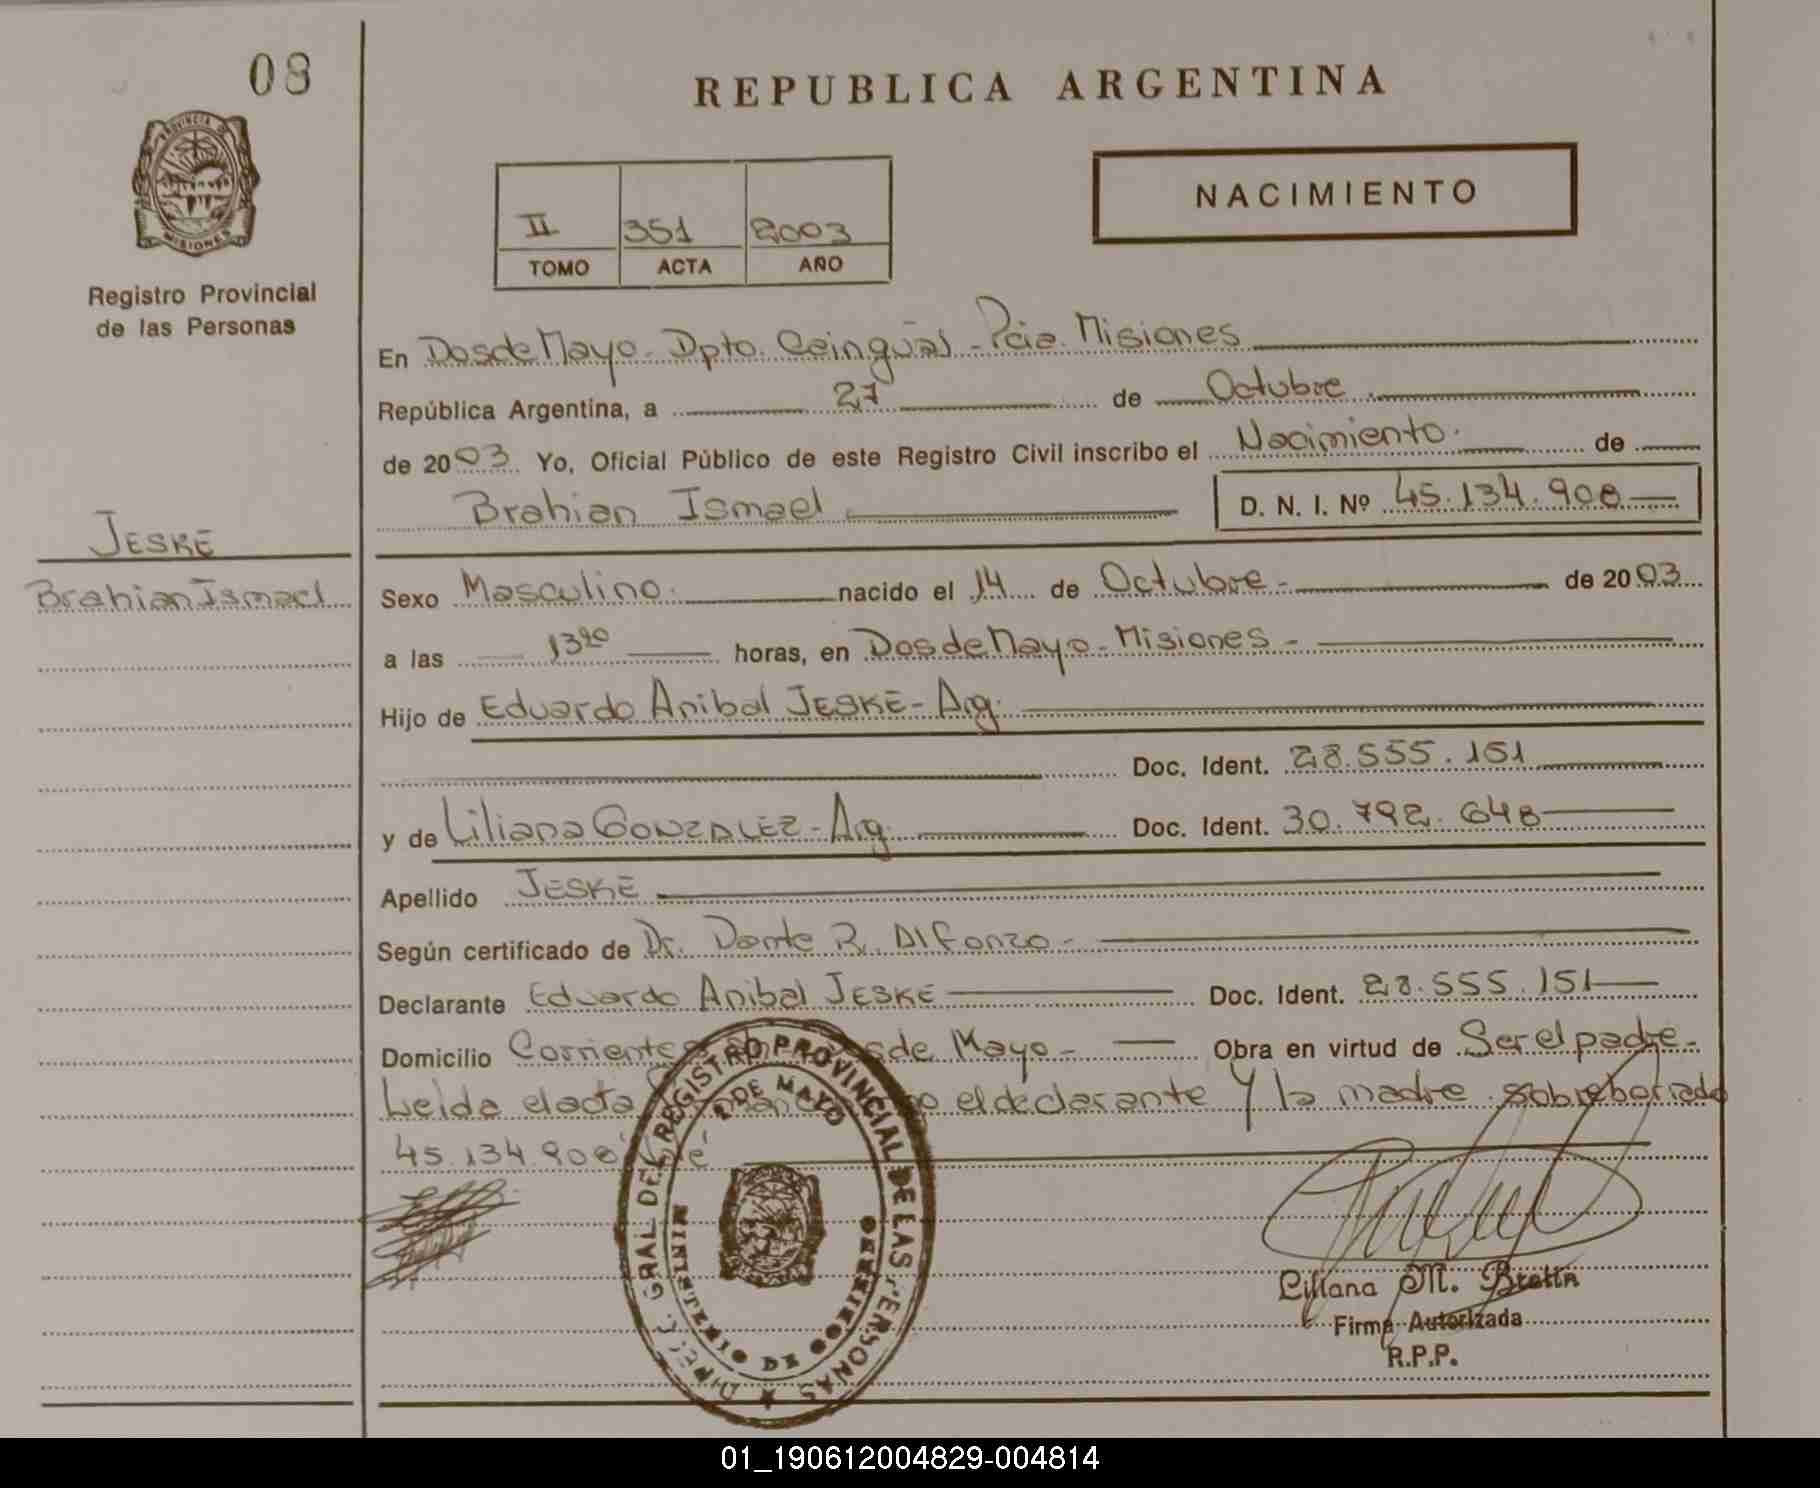 08
REPUBLICA ARGENTINA
PROVINCIA DE
MISIONES
NACIMIENTO
II 351 2003
TOMO ACTA AÑO
Registro Provincial
de las Personas
En Dos de Mayo - Dpto. Caingüás - Pcia. Misiones
República Argentina, a 27 de Octubre
de 2003 Yo, Oficial Público de este Registro Civil inscribo el Nacimiento. de
Brahian Ismael D. N. I. Nº 45.134.908
JESKE
Brahian Ismael
Sexo Masculino. nacido el 14 de Octubre - de 2003
a las 13 horas, en Dos de Mayo - Misiones -
Hijo de Eduardo Anibal JESKE - Arg.
Doc. Ident. 28.555.151
y de Liliana GONZALEZ - Arg. Doc. Ident. 30.792.648
Apellido JESKE
Según certificado de Dr. Dante R. Alfonzo -
Declarante Eduardo Anibal JESKE Doc. Ident. 28.555.151
Domicilio Corrientes de Mayo - Obra en virtud de Ser el padre -
Leida el acta el declarante y la madre sobreborrado
45.134.908
DIREC. GRAL DEL REGISTRO PROVINCIAL DE LAS PERSONAS
2 DE MAYO
MINISTERIO DE GOBIERNO
Liliana M.
Firma Autorizada
R.P.P.
01_190612004829-004814